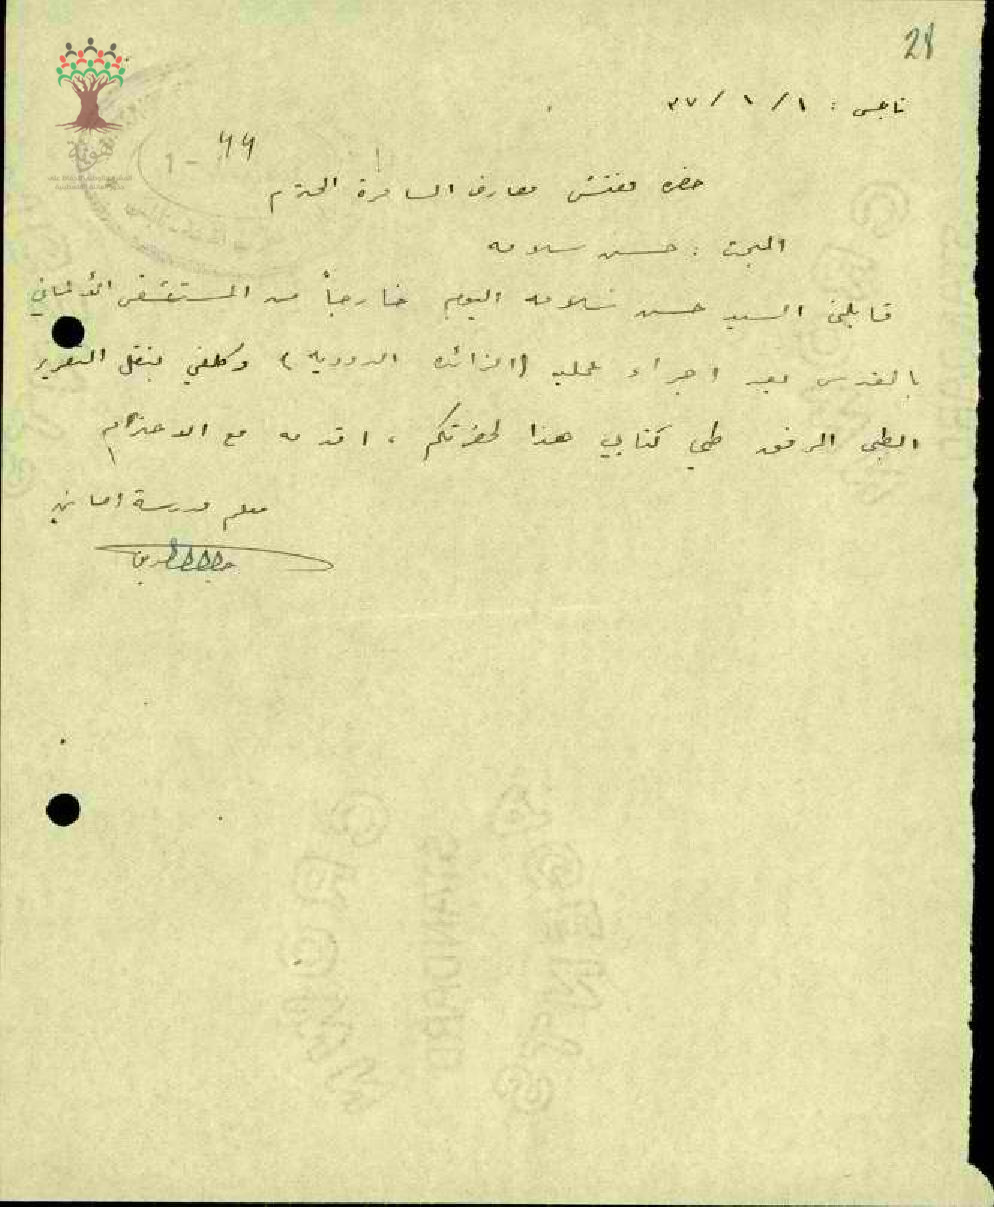 28
نابلس : ١ / ١ / ٣٧
44 - 1
حضرة مفتش معارف السامرة المحترم
البحث : حسن سلامه
قابلني السيد حسن سلامه اليوم خارجاً من المستشفى الألماني
بالقدس بعد اجراء عملية (الزائدة الدودية) وكلفني بنقل التقرير
الطبي المرفق طي كتابي هذا لحضرتكم ، اقدمه مع الاحترام
معلم مدرسة
STANDARD